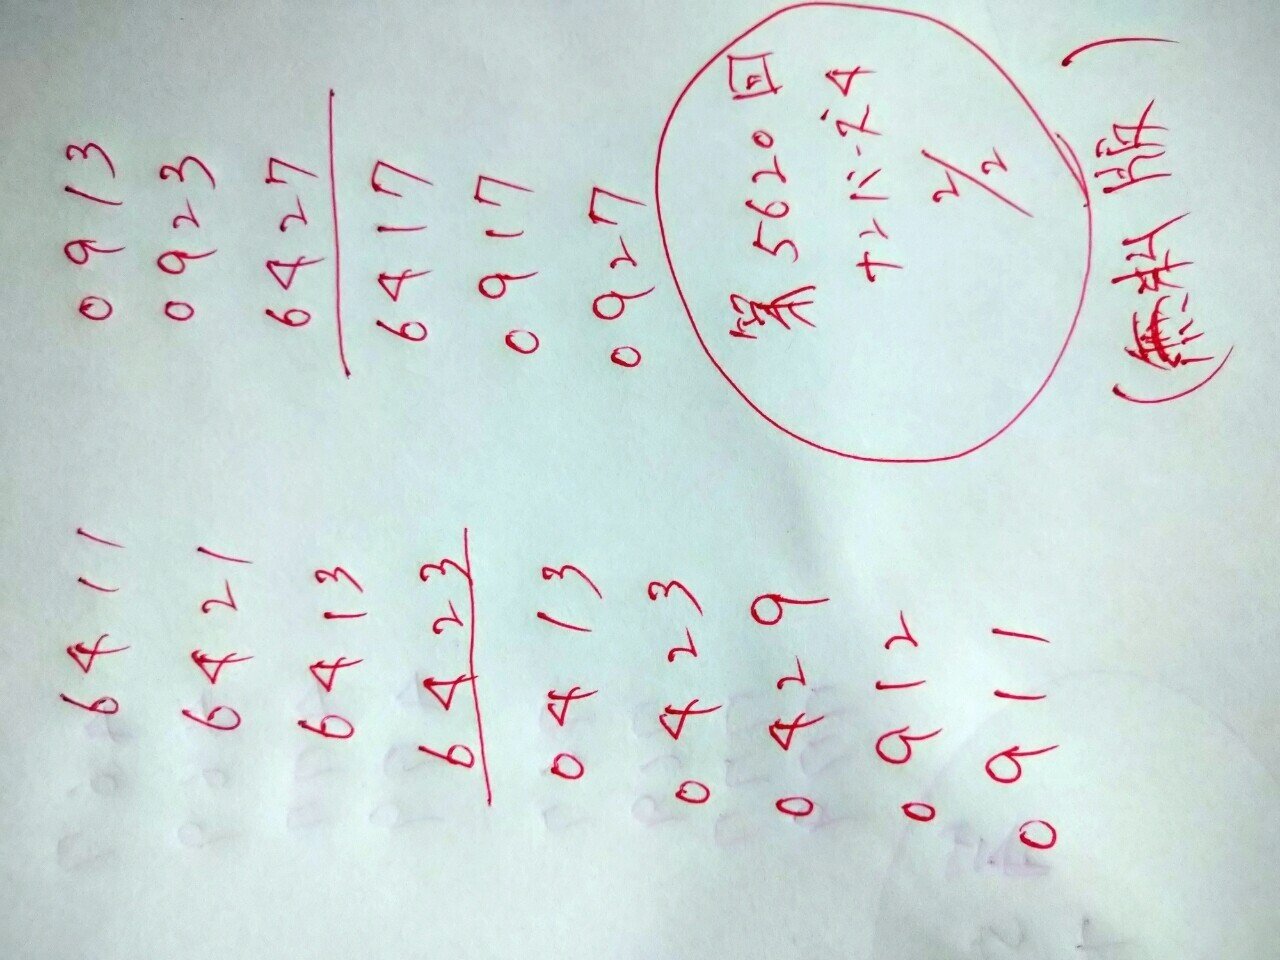 6411
6421
6413
6423
0413
0423
0429
0912
0911
0913
0923
6427
6417
0917
0927
第5620回
ナンバーズ4
2/2
(無料版)